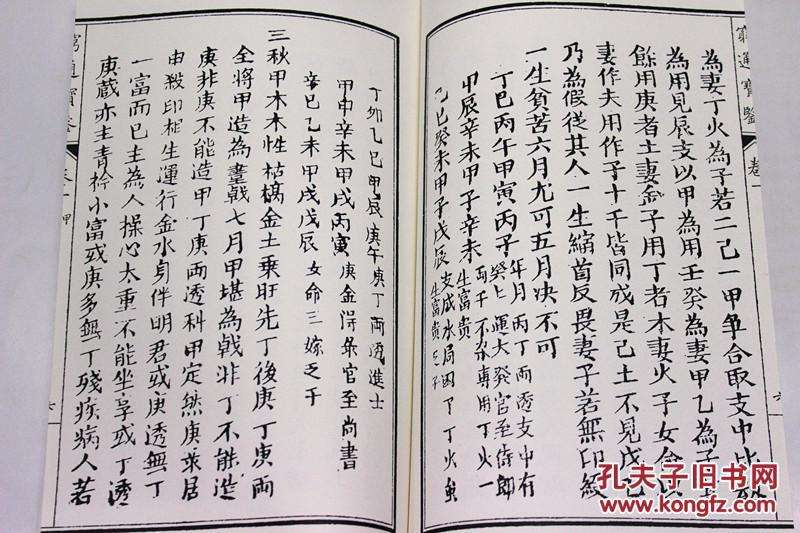 窮通寶鑒
卷一
為妻丁火為子若二己一甲爭合取支中
為用見辰支以甲為用壬癸為妻甲乙為子
餘用庚者土妻金子用丁者木妻火子女命以
妻作夫用作子十千皆同或是己土不見戊己
乃為假從其人一生縮首反畏妻子若無印綬
一生貧苦六月尤可五月决不可
丁巳丙午甲寅丙子年月丙丁兩透支中有
癸七運大發官至侍郎
甲辰辛未甲子辛未兩干不杂專用丁火一
生富贵
乙巳癸未甲子戊辰支成水局因了丁火虫
生富贵
六
丁卯乙巳甲辰庚午庚丁兩透進士
甲申辛未甲戌丙寅庚金得彔官至尚書
辛巳乙未甲戌戊辰女命三嫁乏子
三秋甲木木性枯槁金土乗旺先丁後庚丁庚兩
全将甲造為畫戟七月甲堪為戟非丁不能造
庚非庚不能造甲丁庚兩透科甲定然庚彔居
申殺印相生運行金水身伴明君或庚透無丁
一富而已主為人操心太重不能坐享或丁透
庚蔵亦主青衿小富或庚多無丁殘疾病人若
窮通寶鑒
卷一
甲
七
孔夫子旧书网
www.kongfz.com